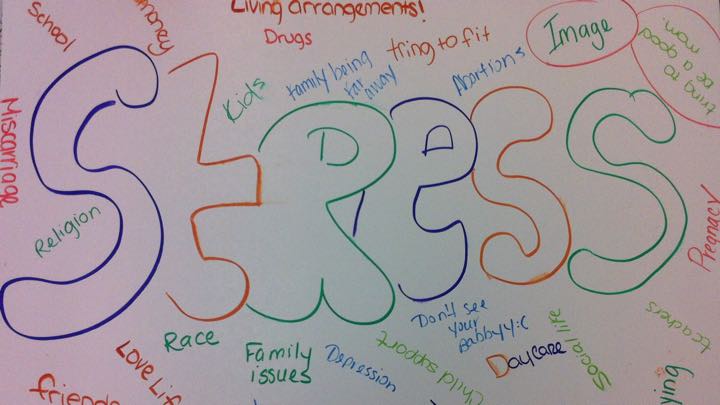 Living arrangements!
School
money
Drugs
tring to fit
Image
tring to
be a good
mom.
Kids
family being
far
away
Abortions
Miscarriage
STRESS
Religion
Pregnacy
Race
Family
issues
Depression
Love Life
friends
Child support
Don't see
your
Daycare
Social life
teachers